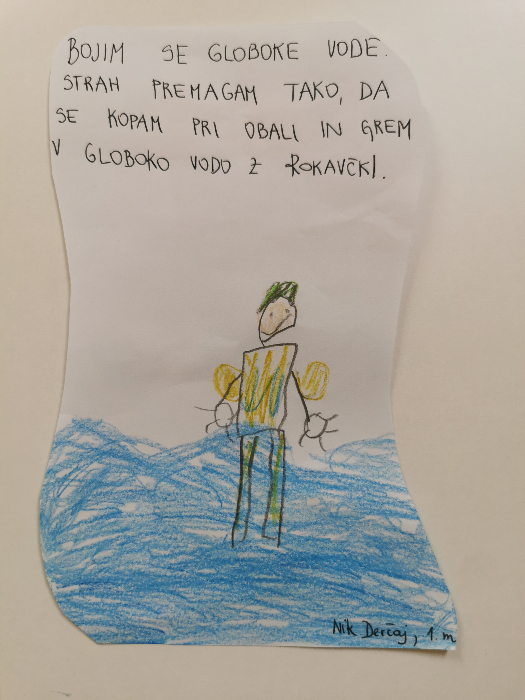 BOJIM SE GLOBOKE VODE.
STRAH PREMAGAM TAKO, DA
SE KOPAM PRI OBALI IN GREM
V GLOBOKO VODO Z ROKAVČKI.
Nik Derčaj, 1. m